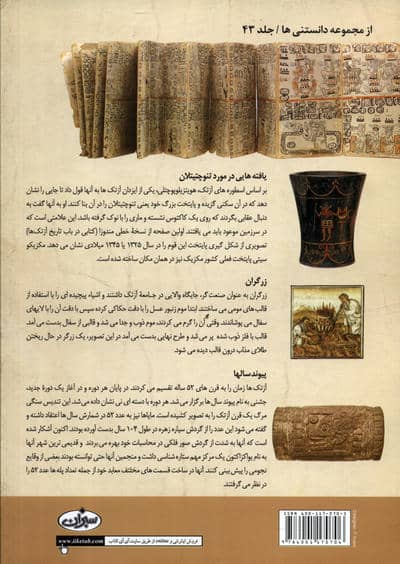 از مجموعه دانستنی ها / جلد ۴۳
یافته هایی در مورد تنوچتیتلان
بر اساس اسطوره های آزتک، هویتزیلوپوچتلی، یکی از ایزدان آزتک ها به آنها قول داد تا جایی را نشان
دهد که در آن سکنی گزیده و پایتخت بزرگ خود یعنی تنوچتیتلان را در آن بنا کنند. او به آنها گفت به
دنبال عقابی بگردند که روی یک کاکتوس نشسته و ماری را با نوک گرفته باشد. این علامتی است که
در سرزمین موعود باید می یافتند. اولین صفحه از نسخهٔ خطی مندوزا (کتابی در باب تاریخ آزتک‌ها)
تصویری از شکل گیری پایتخت این قوم را در سال ۱۳۲۵ یا ۱۳۴۵ میلادی نشان می دهد. مکزیکو
سیتی پایتخت فعلی کشور مکزیک نیز در همان مکان ساخته شده است.
زرگران
زرگران به عنوان صنعت گر، جایگاه والایی در جامعهٔ آزتک داشتند و اشیاء پیچیده ای را با استفاده از
قالب های مومی می ساختند. ابتدا موم زنبور عسل را با دقت حکاکی کرده سپس با دقت آن را لابهلای
سفال می پوشاندند. وقتی آن را گرم می کردند، موم ذوب و جدا می شد و قالبی از سفال بدست می آمد.
قالب با فلز ذوب شده پر می‌شد و طرح نهایی بدست می آمد در این تصویر، یک زرگر در حال ریختن
طلای مذاب درون قالب دیده می شود.
پیوند سالها
آزتک ها زمان را به قرن های ۵۲ ساله تقسیم می کردند. در پایان هر دوره و در آغاز یک دورهٔ جدید،
جشنی به نام پیوند سال‌ها برگزار می‌شد. هر دوره با دسته ای نی نشان داده می شد. این تندیس سنگی
مرگ یک قرن آزتک را به تصویر کشیده است. مایاها نیز به عدد ۵۲ در شمارش سال ها اعتقاد داشته و
گفته می شود این عدد را از گردش سیاره زهره در طول ۱۰۴ سال بدست آورده بودند. اکنون آشکار شده
است که آنها به شدت از گردش صور فلکی در محاسبات خود بهره می بردند و قدیمی ترین شهر آنها
به نام یواکزاکتون یک مرکز مهم ستاره شناسی داشت و منجمین آنها حتی توانسته بودند بعضی از وقایع
نجومی را پیش بینی کنند. آنها در ساخت قسمت های مختلف معابد خود از جمله تعداد پله ها عدد ۵۲ را
در نظر می گرفتند.
سبزان
www.iiketab.com
فروش اینترنتی و عطفکده از طریق سایت آی آی کتاب